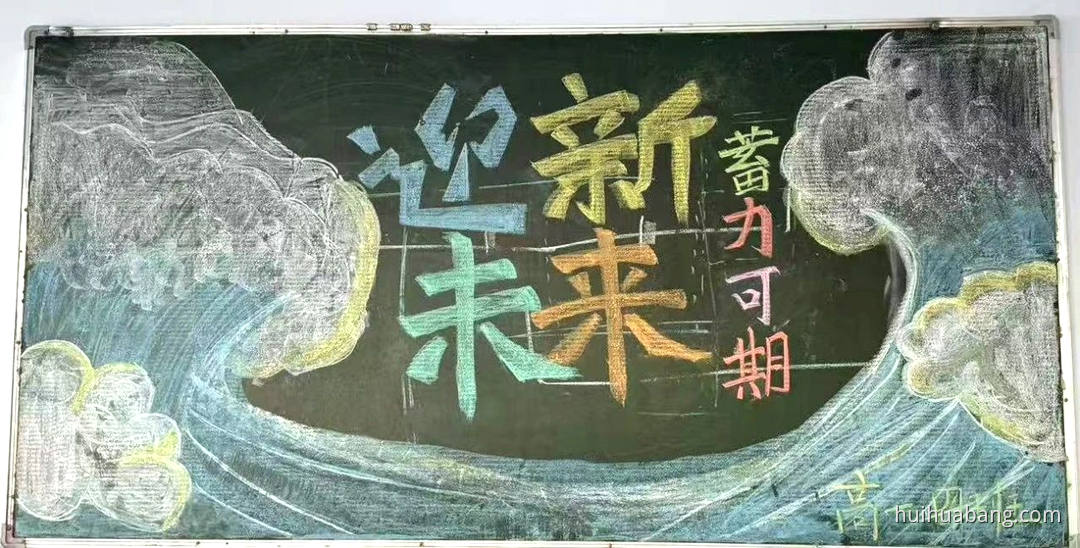 迎新
未来
蓄力可期
高一四班
huihuabang.com